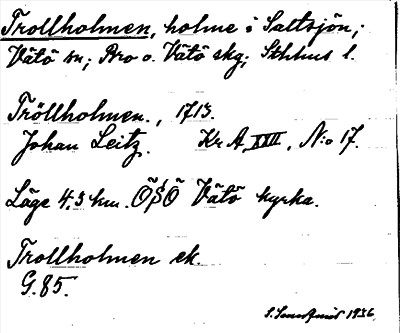 Trollholmen, holme i Saltsjön;
Vätö sn; Bro o. Vätö skg; Sthlms l.
Tröllholmen., 1713.
Johan Leitz. Kr A, XXII, N:o 17.
Läge 4.5 km. ÖSÖ Vätö kyrka.
Trollholmen ek.
G.85.
1936